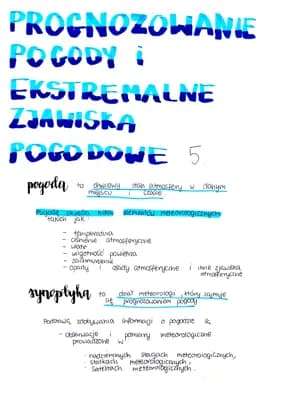 PROGNOZOWANIE
POGODY i
EKSTREMALNE
ZJAWISKA
POGODOWE 5
pogoda to chwilowy stan atmosfery w danym
miejscu i czasie
Pogodę określa kilka elementów meteorologicznych
takich jak:
- temperatura
- ciśnienie atmosferyczne
- wiatr
- wilgotność powietrza
- zachmurzenie
- opady i osady atmosferyczne i inne zjawiska
atmosferyczne
synoptyka to dział meteorologii, który zajmuje
się prognozowaniem pogody
Podstawą zdobywania informacji o pogodzie są
- obserwacje i pomiary meteorologiczne
prowadzone w
· naziemnych stacjach meteorologicznych,
· statkach meteorologicznych,
· satelitach meteorologicznych.